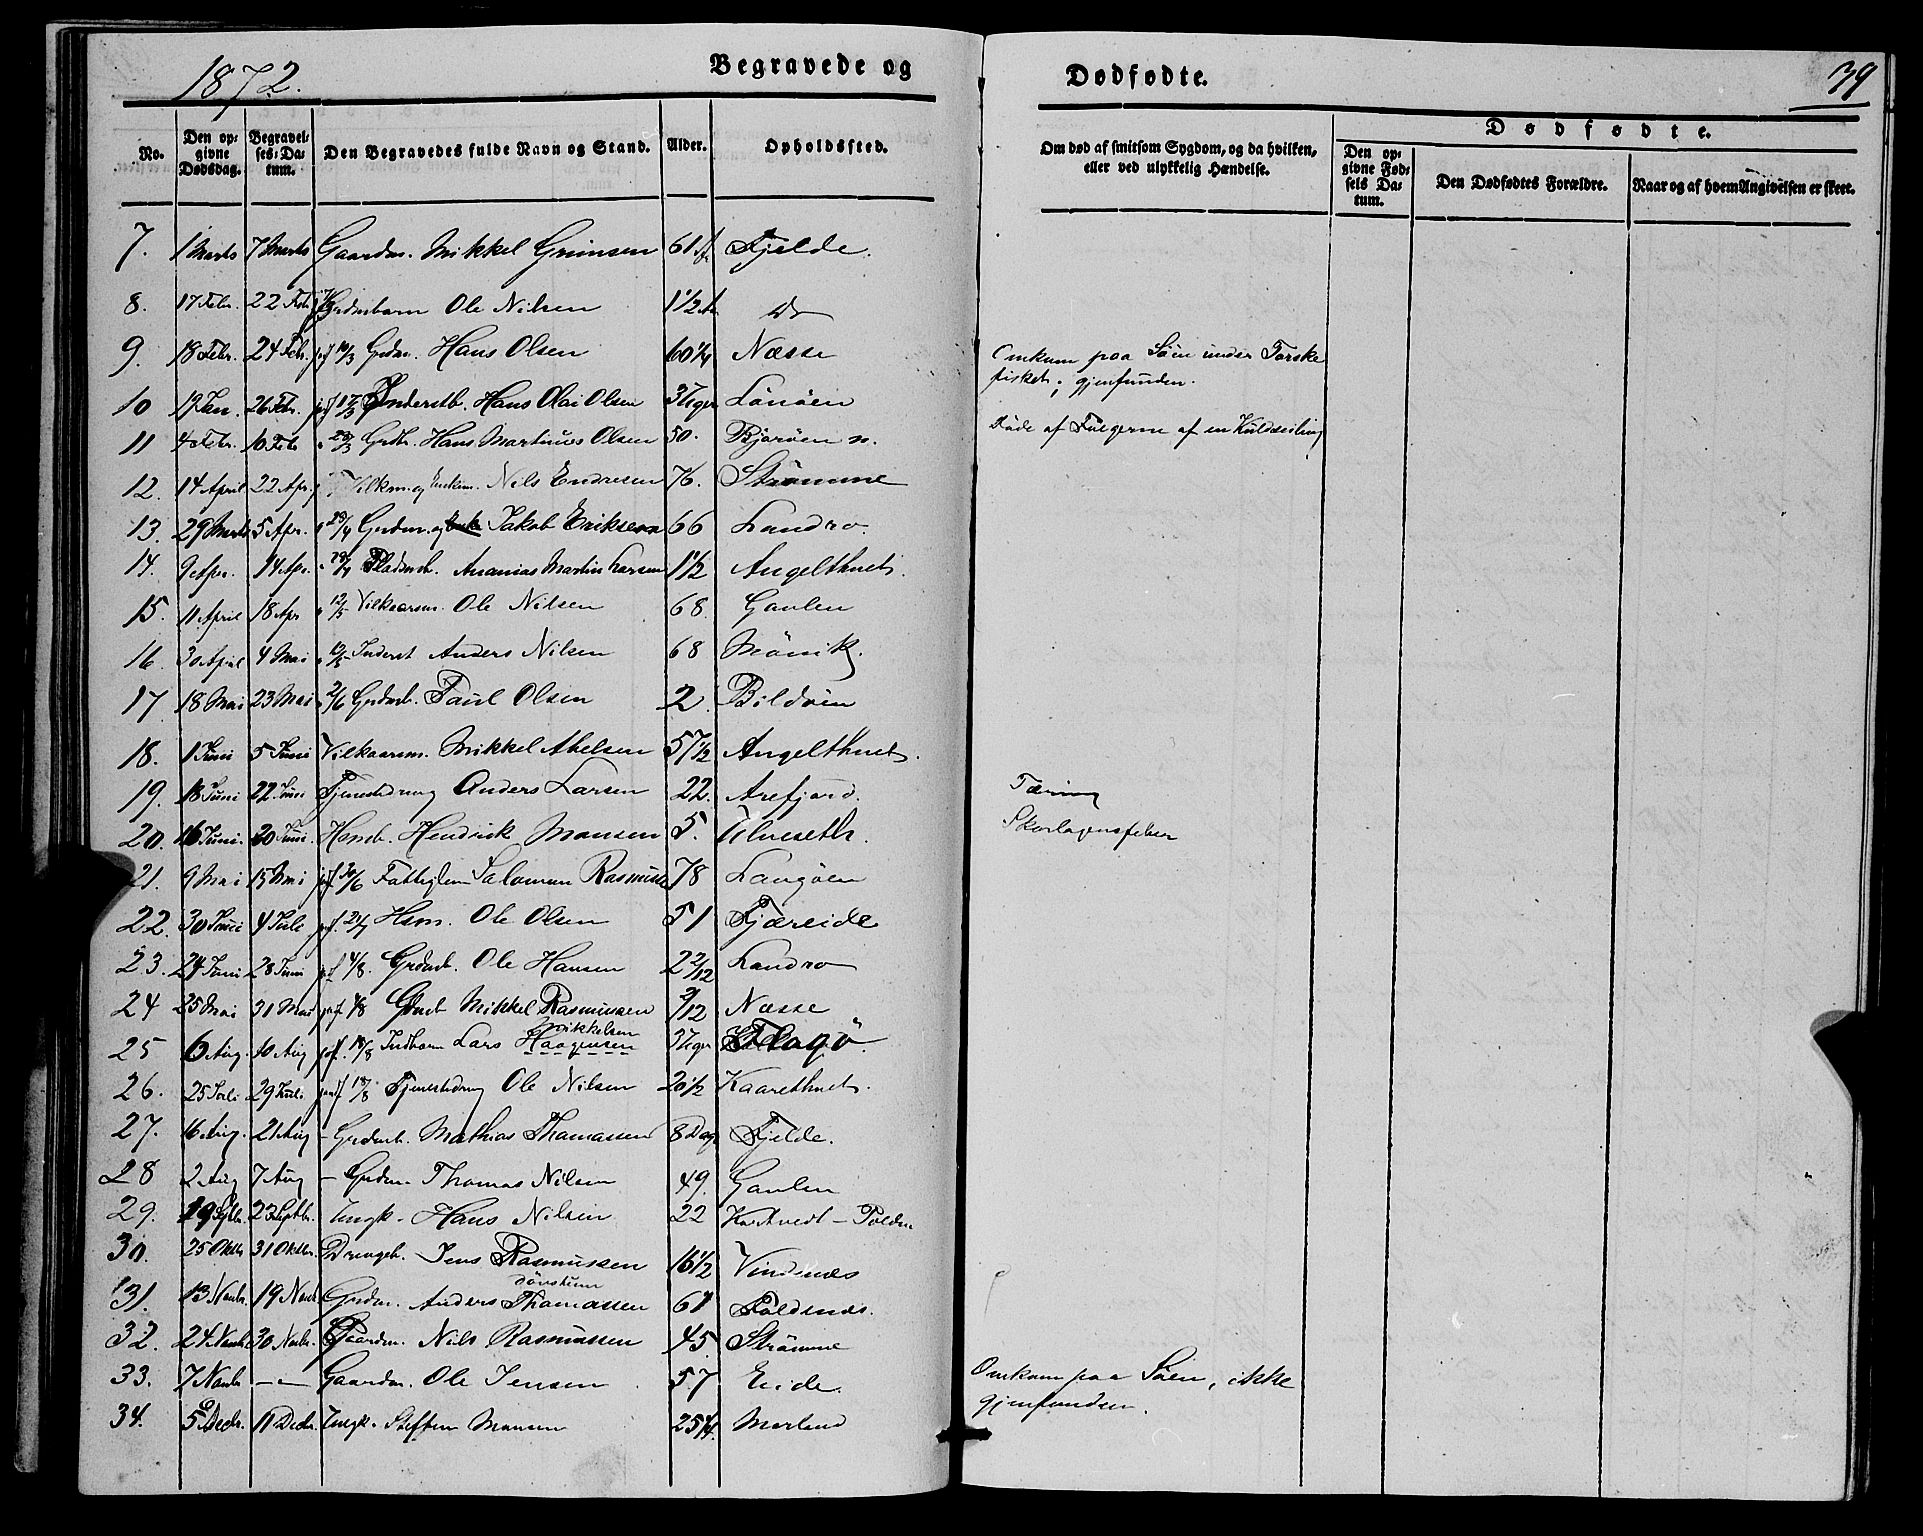 1872.
Begravede og
Dødfødte.
39
No.
Den opgivne Dødsdag.
Begravelses-Datum.
Den Begravedes fulde Navn og Stand.
Alder.
Opholdssted.
Om død af smitsom Sygdom, og da hvilken, eller ved ulykkelig Hændelse.
Dødfødte.
Den opgivne Fødsels Datum.
Den Dødfødtes Forældre.
Naar og af hvem Angivelsen er skeet.
7. 1 Marts 7 Marts Gaardm. Mikkel Grimsen 61 Fjelde.
8. 17 Febr. 22 Febr. Grdmbarn Ole Nilsen 1 1/2 Do
9. 18 Febr. 24 Febr. jf 10/3 Grdm. Hans Olsen 60 1/4 Næsse Omkom paa Søen under Torske
fisket, gjenfunden.
10 19 Jan. 26 Febr. jf 17/3 Inderstb. Hans Olai Olsen 3 Uger Lønøen
11 4 Febr. 10 Feb 29/3 Grdbr. Hans Martinus Olsen 50. Bjorøen n. Døde af Følgerne af en Kuldseiling
12. 14 April 22 Apr. Vilkm. og Enkem. Nils Endresen 76. Strømme
13. 29 Marts 5 Apr. 29/4 Grdm. og Jakob Eriksen 66 Landro
14. 9 Apr. 14 Apr. 28/4 Pladsmb. Ananias Martin Larsen 1 1/2 Angelthuet.
15. 11 April 18 Apr 12/5 Vilkaarsm. Ole Nilsen 68. Gaulen
16. 30 April 4 Mai Inderst Anders Nilsen 68 Møvik.
17. 18 Mai 23 Mai 2/6 Grdmb. Paul Olsen 2. Bildøen
18. 1 Juni 5 Juni Vilkaarsm. Mikkel Abelsen 57 1/2 Angelthuet.
19. 18 Juni 22 Juni Tjenestedreng Anders Larsen 22. Arefjord. Tæring
20. 16 Juni. 20 Juni. Hendrik Monsen 5. Ulveseth. Skarlagensfeber
21. 9 Mai 15 Mai jf 30/6 Fattiglem Salomon Rasmusse 78 Langøen
22. 30 Juni 4 Juli jf. 21/7 Hsm. Ole Olsen 51 Fjæreide
23. 24 Juni 28 Juni jf 4/8. Grdmb. Ole Hansen 2 2/12 Landro
24 25 Mai 31 Mai jf 4/8 Grdmb Mikkel Rasmussen 2/12 Næsse
Mikkelsen
25 6 Aug. 10 Aug jf. 18/8 Indbarn Lars Haagensen 3 Uger Flagø
26. 25 Juli 29 Juli. jf 18/8 Tjenestedreng Ole Nilsen 20 1/2 Kaarethuet.
27. 16 Aug. 21 Aug - Grdmb. Mathias Thomassen 8 Dag Fjelde.
28 2 Aug 7 Aug - Grdm. Thomas Nilsen 49. Gaulen
29. 19 Septbr. 23 Septbr. Ungk. Hans Nilsen 22 Kortvedt - Foldn
30. 25 Oktbr 31 Oktbr. Drengeb. Jens Rasmussen 16 1/2 Vindenæs
31. 13 Novbr. 19 Novb. Grdm. Anders Thomassen 61 Foldnæs.
32. 24. Novbr 30 Novbr. Gaardm. Nils Rasmussen 45. Strømme
33. 7 Novbr — — Gaardm. Ole Jensen 57 Eide. Omkom paa Søen, ikke
gjenfunden.
34. 5 Decbr. 11 Decbr. Ungk. Steffen Monsen 25 1/4. Morland